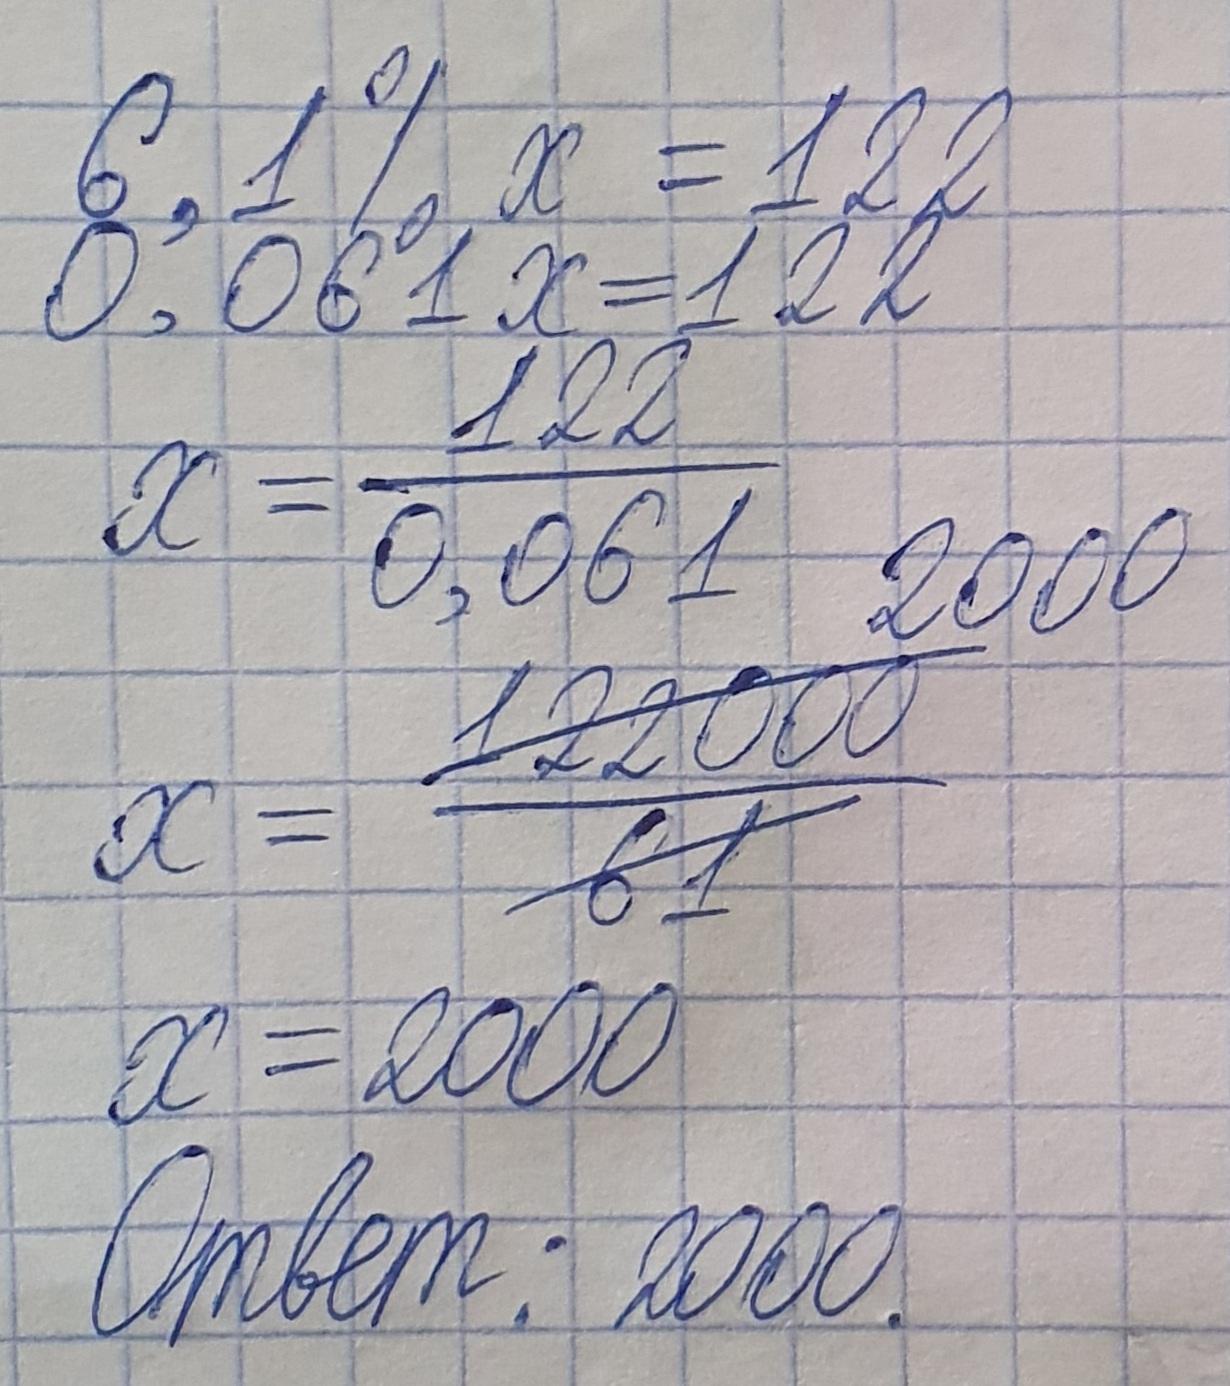 6,1% x = 122
0,061 x = 122
x = 122 / 0,061
x = 122000 / 61 2000
x = 2000
Ответ: 2000.